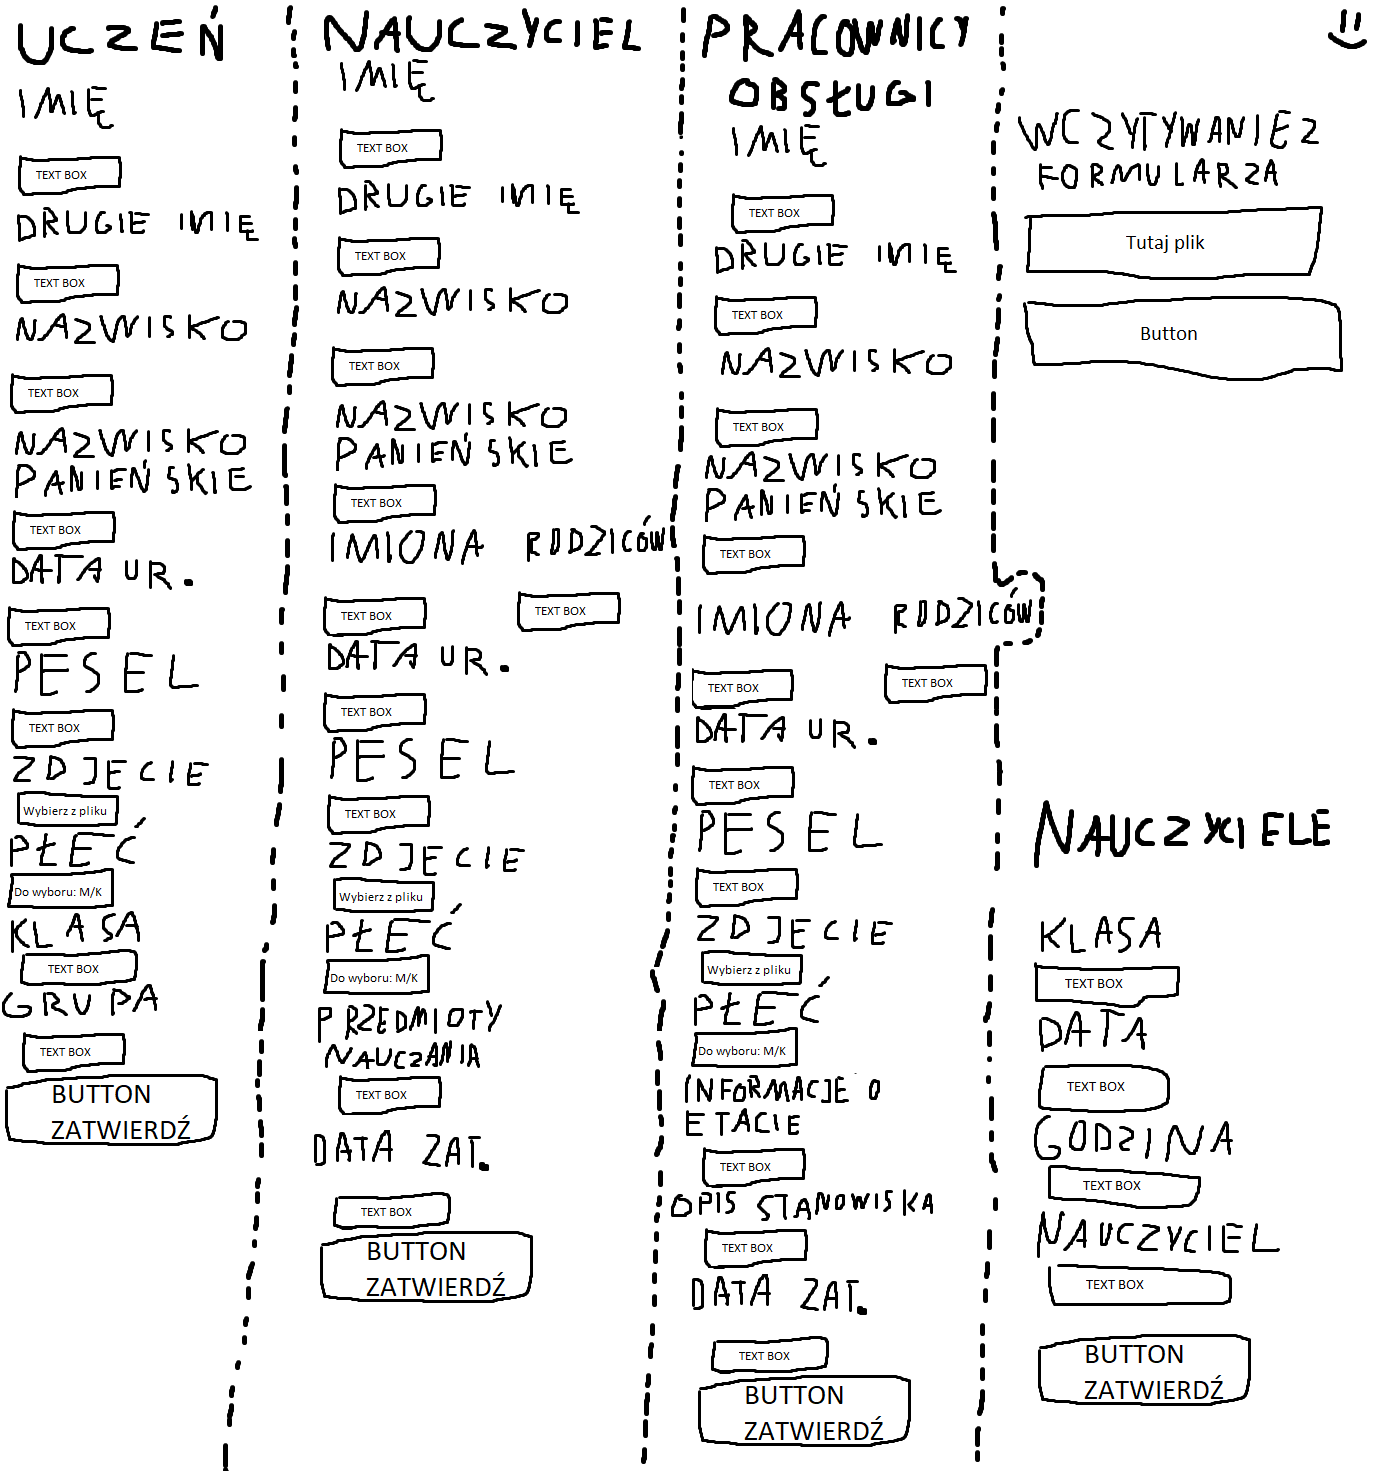 UCZEŃ
IMIĘ
TEXT BOX
DRUGIE IMIĘ
TEXT BOX
NAZWISKO
TEXT BOX
NAZWISKO
PANIEŃSKIE
TEXT BOX
DATA UR.
TEXT BOX
PESEL
TEXT BOX
ZDJECIE
Wybierz z pliku
PŁEĆ
Do wyboru: M/K
KLASA
TEXT BOX
GRUPA
TEXT BOX
BUTTON
ZATWIERDŹ
NAUCZYCIEL
IMIĘ
TEXT BOX
DRUGIE IMIĘ
TEXT BOX
NAZWISKO
TEXT BOX
NAZWISKO
PANIEŃSKIE
TEXT BOX
IMIONA RODZICÓW
TEXT BOX TEXT BOX
DATA UR.
TEXT BOX
PESEL
TEXT BOX
ZDJECIE
Wybierz z pliku
PŁEĆ
Do wyboru: M/K
PRZEDMIOTY
NAUCZANIA
TEXT BOX
DATA ZAT.
TEXT BOX
BUTTON
ZATWIERDŹ
PRACOWNICY
OBSŁUGI
IMIĘ
TEXT BOX
DRUGIE IMIĘ
TEXT BOX
NAZWISKO
TEXT BOX
NAZWISKO
PANIEŃSKIE
TEXT BOX
IMIONA RODZICÓW
TEXT BOX TEXT BOX
DATA UR.
TEXT BOX
PESEL
TEXT BOX
ZDJECIE
Wybierz z pliku
PŁEĆ
Do wyboru: M/K
INFORMACJE O
ETACIE
TEXT BOX
OPIS STANOWISKA
TEXT BOX
DATA ZAT.
TEXT BOX
BUTTON
ZATWIERDŹ
WCZYTYWANIE Z
FORMULARZA
Tutaj plik
Button
NAUCZYCIELE
KLASA
TEXT BOX
DATA
TEXT BOX
GODZINA
TEXT BOX
NAUCZYCIEL
TEXT BOX
BUTTON
ZATWIERDŹ